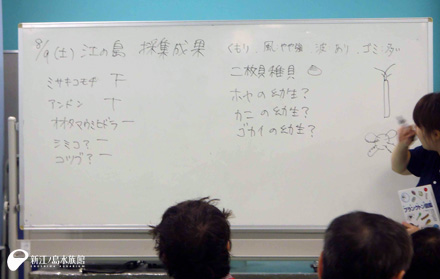 8/9(土) 江の島 採集成果
くもり、風やや強 波あり、ゴミ多い
ミサキコモチ 下
アンドン 下
オオタマウミヒドラ 一
シミコ? 一
コツブ? 一
二枚貝稚貝
ホヤの幼生?
カニの幼生?
ゴカイの幼生?
プランクトン図鑑
新江ノ島水族館